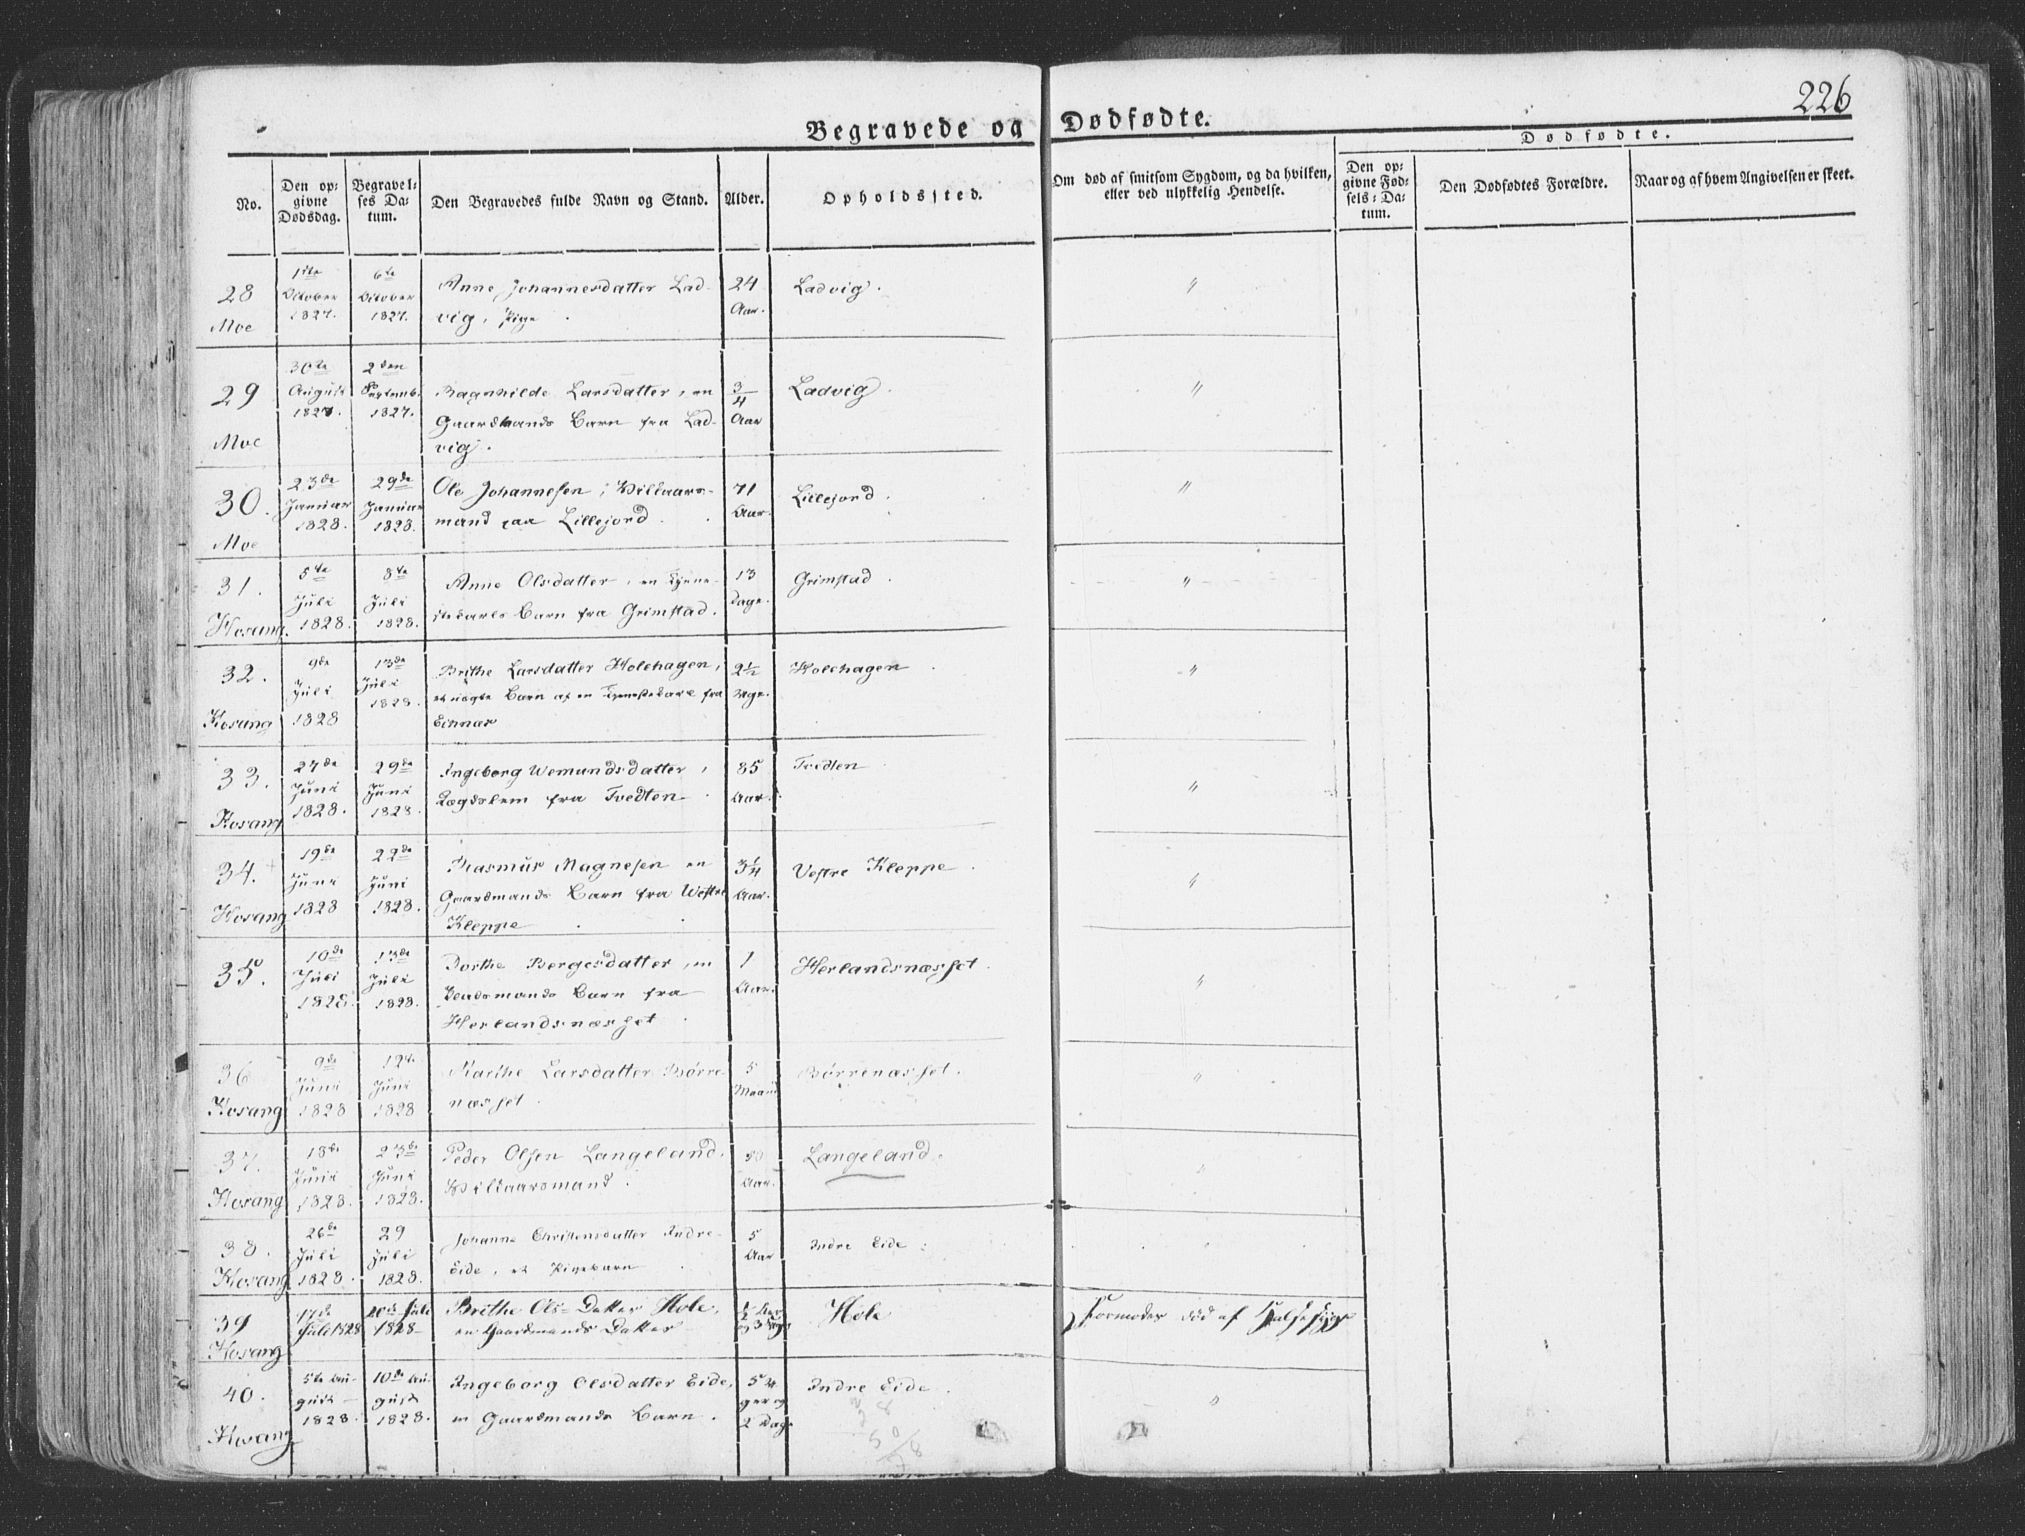 226
Begravede og Dødfødte.
Dødfødte.
No.
Den opgivne Dødsdag.
Begravelses Datum.
Den Begravedes fulde Navn og Stand.
Alder.
Opholdssted.
Om død af smitsom Sygdom, og da hvilken, eller ved ulykkelig Hendelse.
Den opgivne Fødsels-Datum.
Den Dødfødtes Forældre.
Naar og af hvem Angivelsen er skeet.
28 Moe 1ste October 1827. 6te October 1827. Anne Johannesdatter Lad- 24 Aar. Ladvig. "
vig, Pige
29 Moe 30te August 1827. 2den Septemb. 1827. Ragnhilde Larsdatter, en 3/4 Aar Ladvig. "
Gaardmands Barn fra Lad-
vig.
30. Moe 23de Januar 1828. 29de Januar 1828. Ole Johannesen, Vilkaars- 71 Aar. Lillejord. "
mand paa Lillejord.
31. Hosang. 5te Juli 1828. 8de Juli 1828. Anne Olsdatter, en Tjene- 13 Dage. Grimstad. "
stekarls Barn fra Grimstad.
32. Hosang 9de Juli 1828 13de Juli 1828. Brithe Larsdatter Holehagen, 2½ Holehagen "
et uægte Barn af en Tjenestekarl fra
33. Hosang 27de Juni 1828. 29de Juni 1828. Ingeborg Wemundsdatter, 85 Aar. Tvedten "
Lægdslem fra Tvedten
34. Hosang 19de Juni 1828 22de Juni 1828. Rasmus Magnesen en 3¼ Aar. Vestre Kleppe. "
Gaardmands Barn fra Westre
Kleppe
35. 10de Juli 1828. 13de Juli 1828. Dorthe Bergesdatter, en 1 Aar. Herlandsnæsset. "
Barn fra
Herlandsnæsset.
36 Hosang 9de Juni 1828 12te Juni 1828 Marthe Larsdatter Børre- 5 Maan. Børrenæsset. "
næsset.
37. Hosang 18de Juni 1828. 23de Juni 1828. Peder Olsen Langeland. Aar. Langeland. "
Vilkaarsmand.
38. Hosang 26de Juli 1828. 29 Juli 1828. Johanne Christensdatter Indre- 5 Aar Indre Eide.
Eide, et Pigebarn
39 Hosang 17de Juli 1828 20de Juli 1828 Brithe Ols-Datter Hole, ½ Aar Hole Formodes død af Halsesyge
en Gaardmands Datter
40. Hosang 5te August 1828. 10de August 1828. Ingeborg Olsdatter Eide, 5 Uger og 2 Dage Indre Eide. "
en Gaardmands Barn.